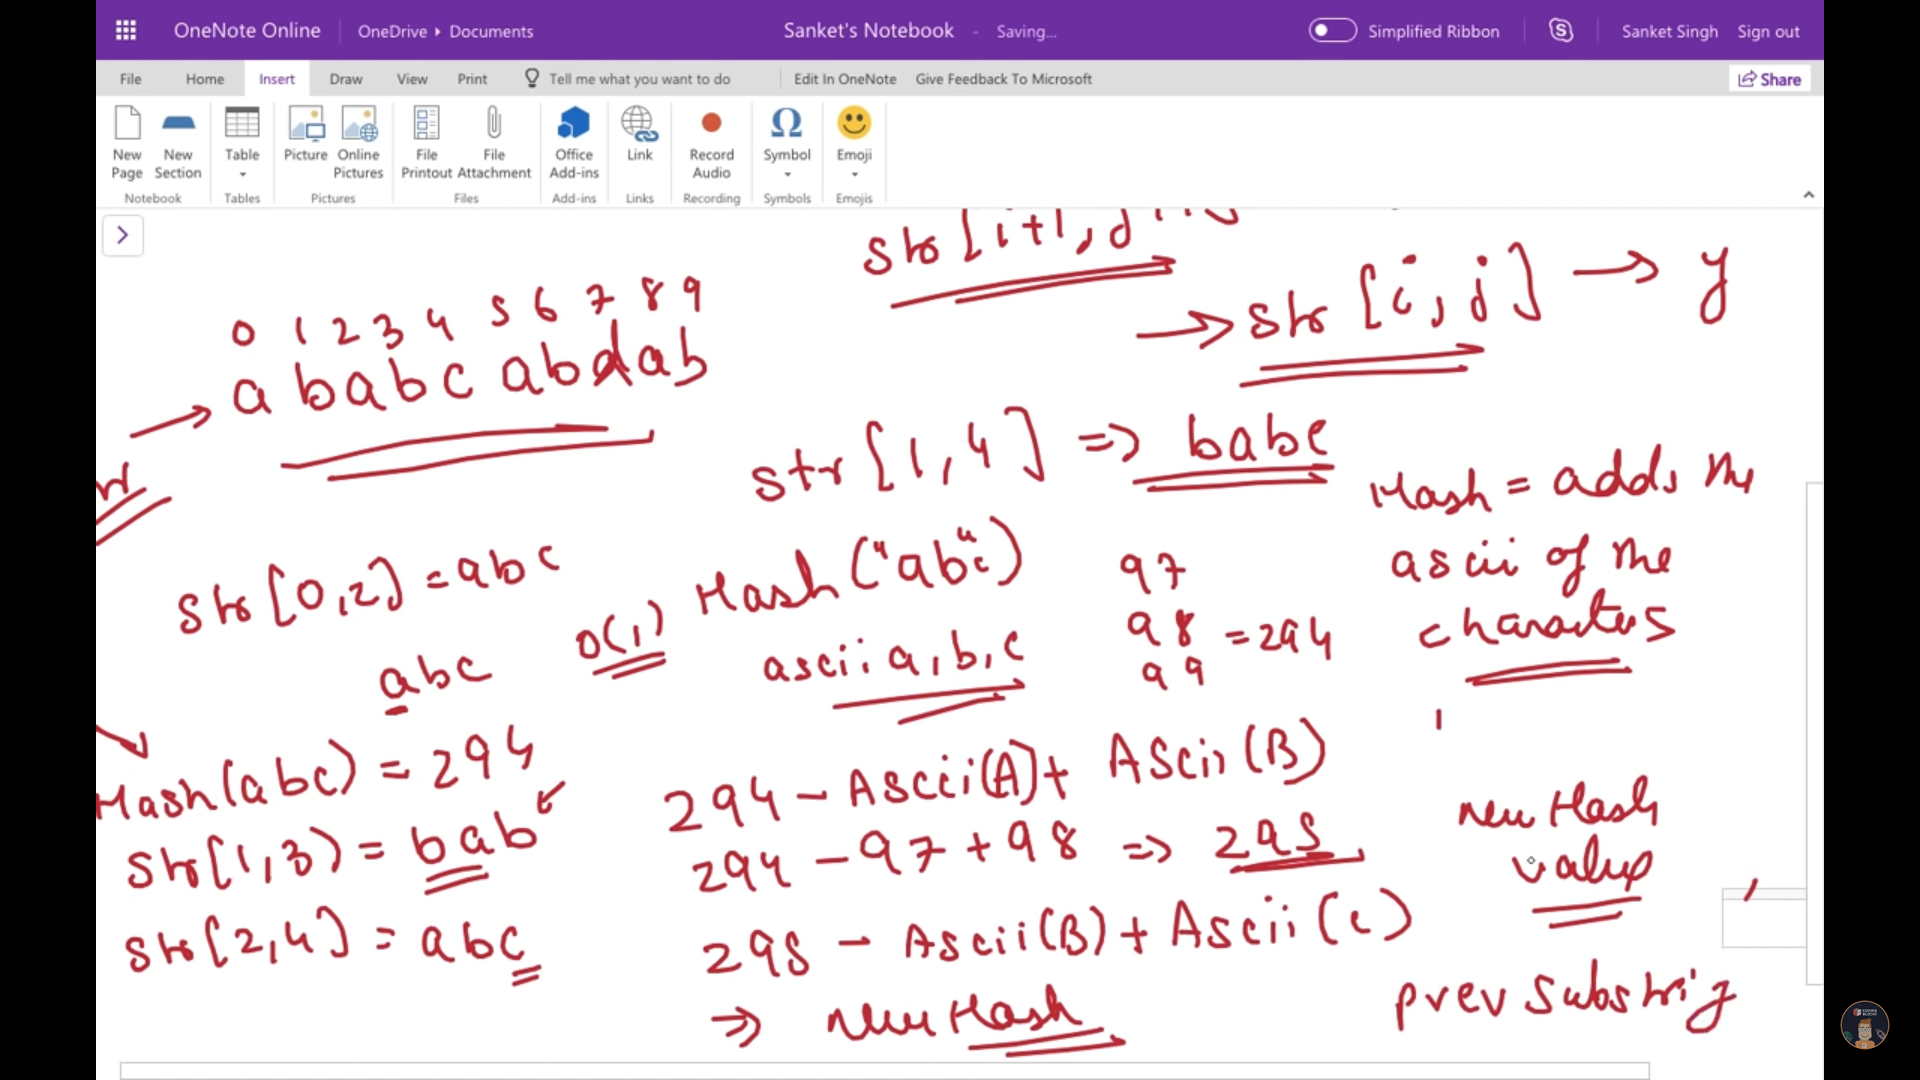 OneNote Online OneDrive ▸ Documents Sanket's Notebook - Saving... Simplified Ribbon Sanket Singh Sign out
File Home Insert Draw View Print Tell me what you want to do Edit In OneNote Give Feedback To Microsoft Share
New Page New Section Table Picture Online Pictures File Printout File Attachment Office Add-ins Link Record Audio Symbol Emoji
Notebook Tables Pictures Files Add-ins Links Recording Symbols Emojis
str[i+1, j+1]
→ str[i, j] → y
0 1 2 3 4 5 6 7 8 9
→ a b a b c a b d a b
str[1,4] => babc
Hash = adds the
ascii of the
characters
str[0,2] = abc
abc
O(1) Hash("abc")
ascii a, b, c
97
98 = 294
99
Hash(abc) = 294
str[1,3) = bab
str[2,4] = abc
294 - Ascii(A) + Ascii(B)
294 - 97 + 98 => 295
295 - Ascii(B) + Ascii(c)
=> new Hash
new Hash
value
prev substring